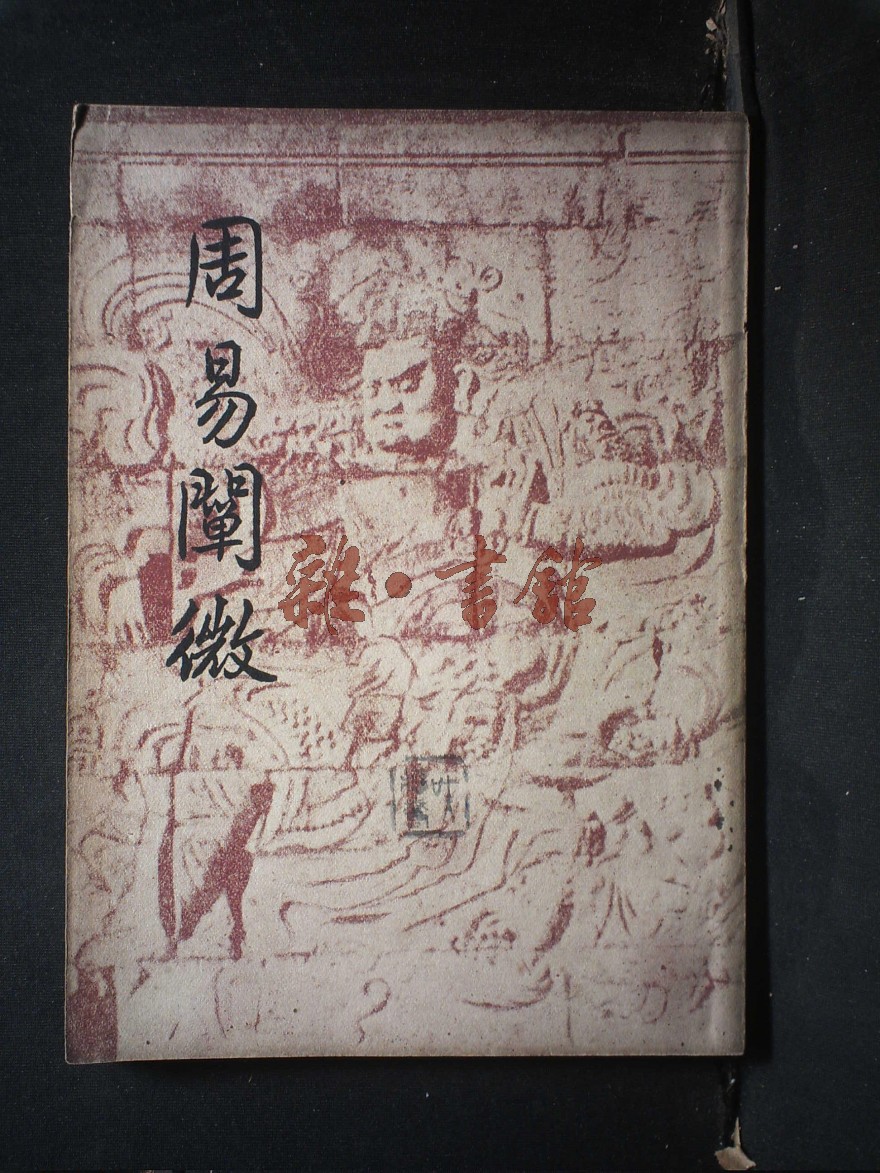 周易闡微
雜·書館